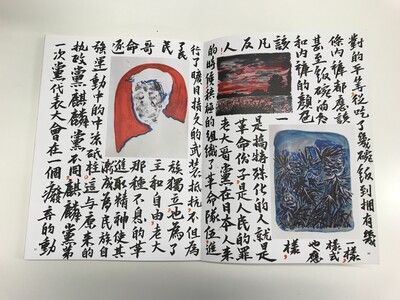 對的平等從吃了幾碗飯到擁有幾
條內褲都應該一樣
甚至飯碗的大樣式
和內褲的顏色也應
該樣
凡是搞特殊化的人就是
反革命份子是人民的罪
人老大哥黨在日本人來
的時候積極的組織了革命隊伍進
行了曠日持久的武装抵抗不但為
民族獨立也為了
民主和自由老大
哥那種不息的革
命進取精神使其
逐漸成為民族自
強運動中的中流砥柱這与原来的
執政黨麒麟黨不同麒麟黨第
一次黨代表大會在一個廢弃的動